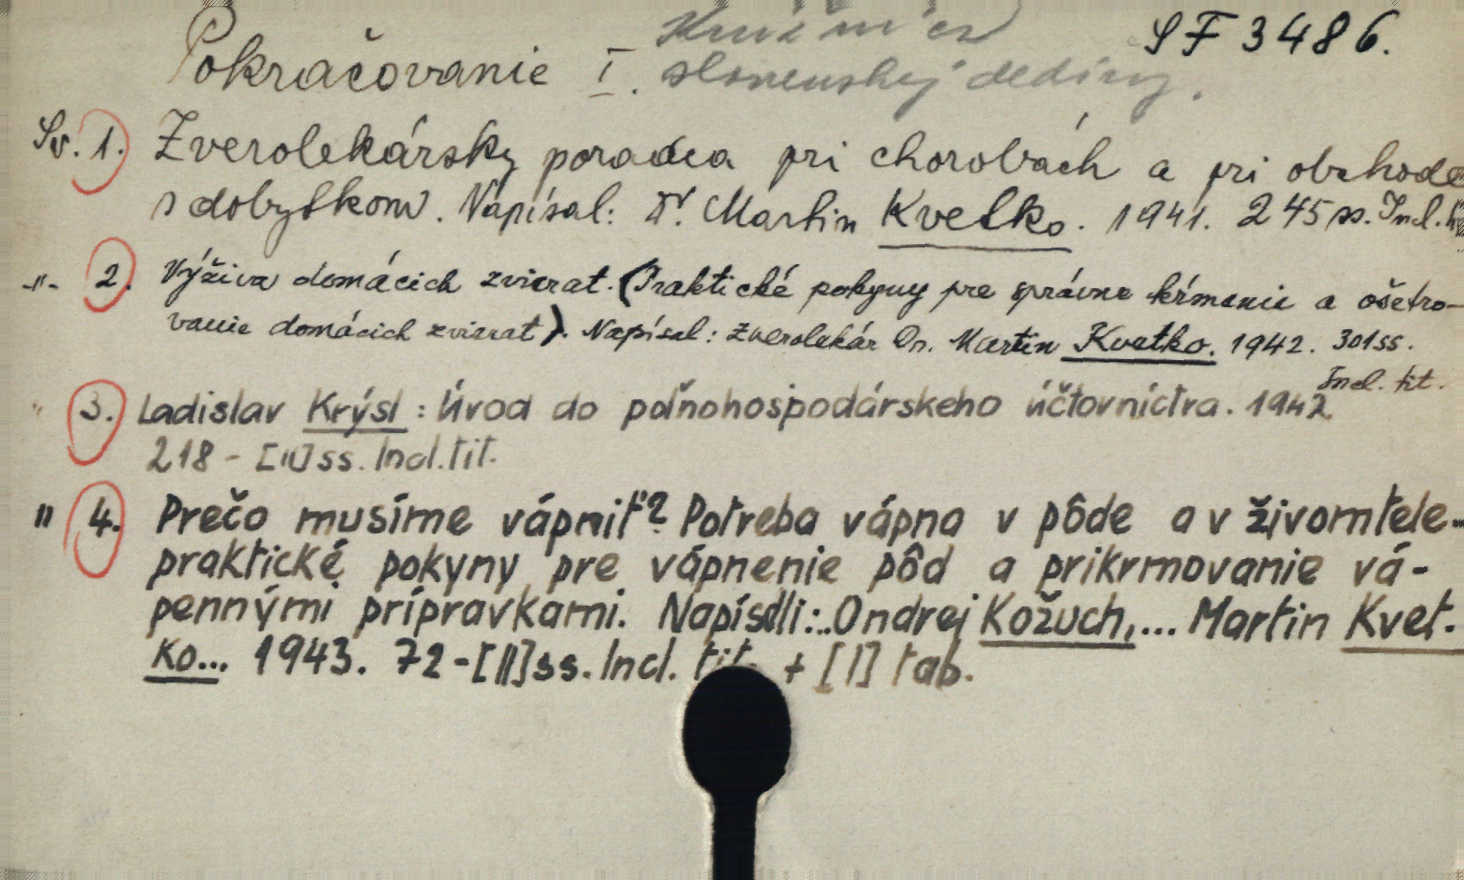 Knižnica SF 3486.
Pokračovanie I. slovenskej dediny.
Sv. 1. Zverolekársky poradca pri chorobách a pri obchode
s dobytkom. Napísal: Dr. Martin Kvetko. 1941. 245 ss. Incl.
-"- 2. Výživa domácich zvierat. (Praktické pokyny pre správne kŕmenie a ošetro-
vanie domácich zvierat). Napísal: Zverolekár Dr. Martin Kvetko. 1942. 301 ss.
Incl. tit.
" 3. Ladislav Krýsl: Úvod do poľnohospodárskeho účtovníctva. 1942
218-[II] ss. Incl. tit.
" 4. Prečo musíme vápniť? Potreba vápna v pôde a v živom tele...
praktické pokyny pre vápnenie pôd a prikrmovanie vá-
pennými prípravkami. Napísali:..Ondrej Kožuch,... Martin Kvet-
ko... 1943. 72-[II] ss. Incl. tit. + [I] tab.